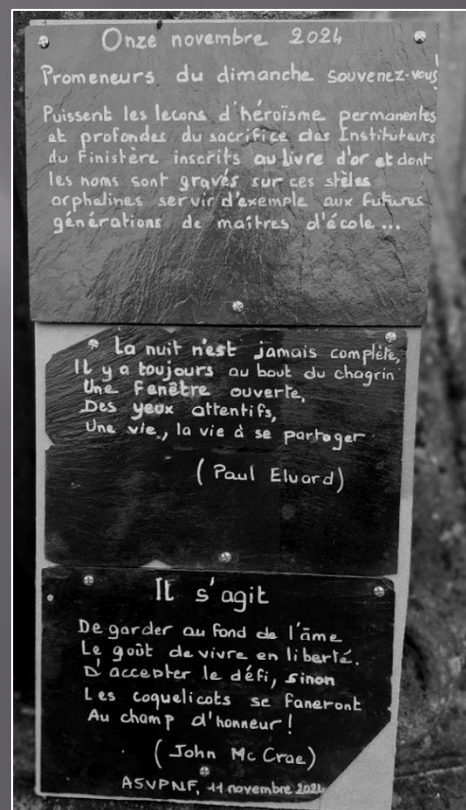 Onze novembre 2024
Promeneurs du dimanche souvenez-vous!
Puissent les lecons d'héroïsme permanentes
et profondes du sacrifice des Instituteurs
du Finistère inscrits au livre d'or et dont
les noms sont gravés sur ces stèles
orphelines servir d'exemple aux futures
générations de maîtres d'école...
La nuit n'est jamais complète,
Il y a toujours au bout du chagrin
Une fenêtre ouverte,
Des yeux attentifs,
Une vie, la vie à se partager
(Paul Eluard)
Il s'agit
De garder au fond de l'âme
Le goût de vivre en liberté.
D'accepter le défi, sinon
Les coquelicots se faneront
Au champ d'honneur!
(John Mc Crae)
ASVPNF, 11 novembre 2024